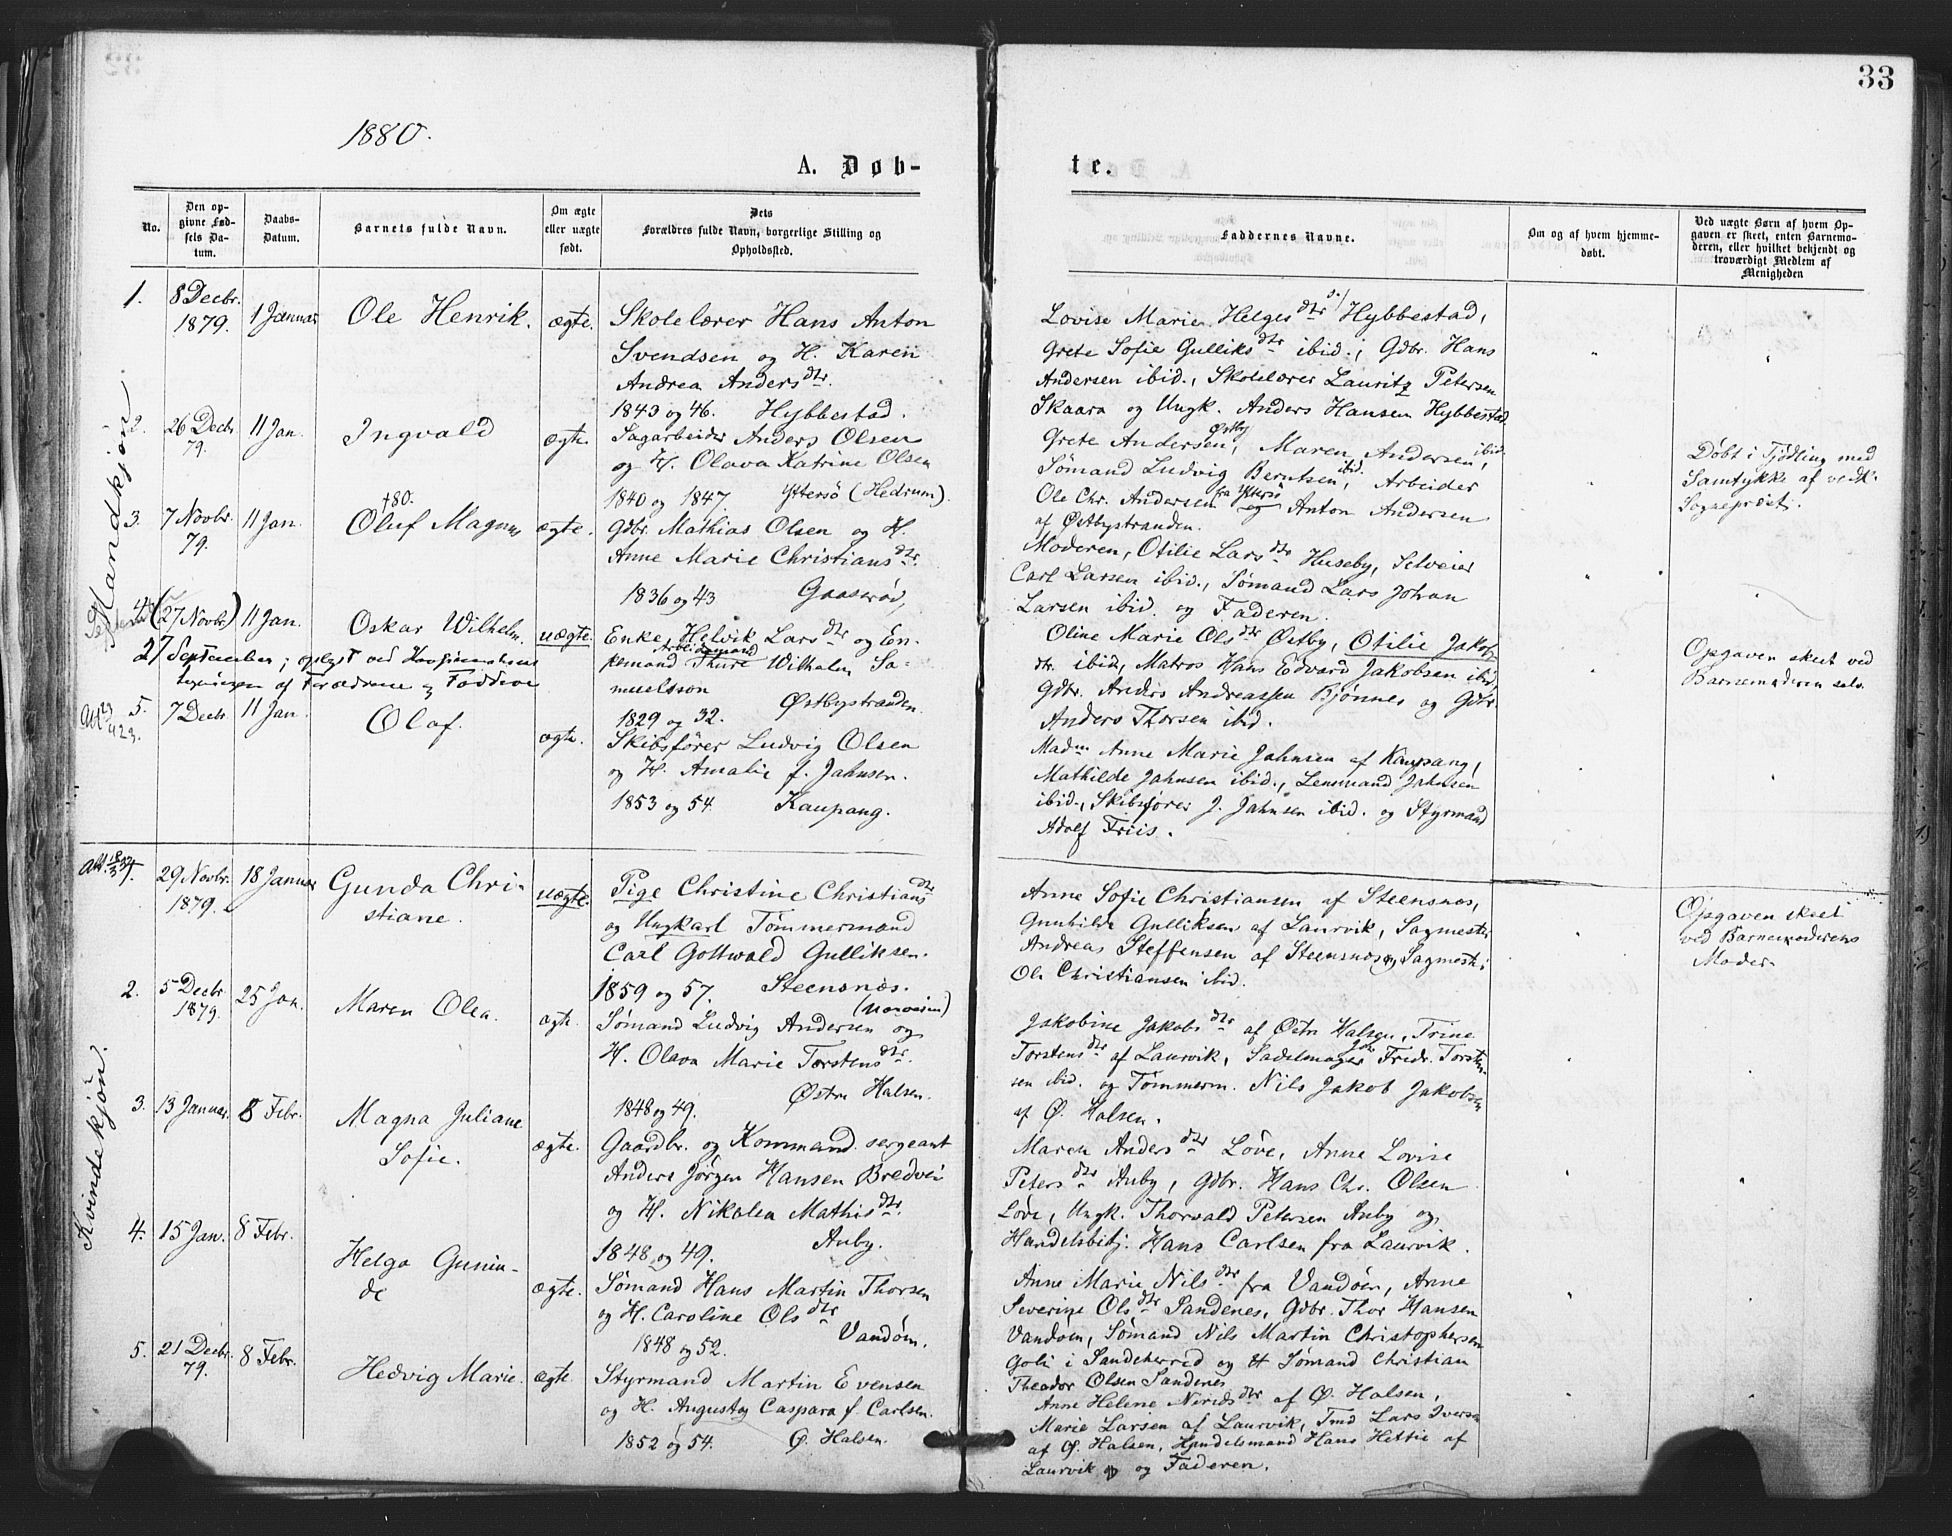 33
1880.
A. Døb-
te.
No.
Den op-
givne Fød-
sels Da-
tum.
Daabs-
Datum.
Barnets fulde Navn.
Om ægte
eller uægte
født.
Dets
Forældres fulde Navn, borgerlige Stilling og
Opholdssted.
Faddernes Navne.
Om og af hvem hjemme-
døbt.
Ved uægte Børn af hvem Op-
gaven er skeet, enten Barnemo-
deren, eller hvilket bekjendt og
troværdigt Medlem af
Menigheden
Mandkjön.
1.
8 Decbr.
1879.
1 Januar
Ole Henrik.
ægte.
Skolelærer Hans Anton
Svendsen og H. Karen
Andrea Andersdtr.
1843 og 46. Hybbestad.
Lovise Marie Helgesdtr Hybbestad,
Grete Sofie Gulliksdtr ibid.; Gdbr. Hans
Andersen ibid., Skolelærer Lauritz Petersen
Skaara og Ungk. Anders Hansen Hybbestad
2.
26 Decbr
79.
11 Jan.
Ingvald
ægte.
Sagarbeider Anders Olsen
og H. Olava Katrine Olsen
1840 og 1847. Yttersö (Hedrum).
Grete Andersen Østby, Maren Andersen ibid.,
Sømand Ludvig Berntsen ibid., Arbeider
Ole Chr. Andersen fra Yttersö og Anton Andersen
af Østbystranden.
Döbt i Tjödling med
Samtykke af vedk.
Sogneprest.
3.
7 Novbr.
79.
11 Jan.
†80.
Oluf Magnus
ægte.
Gdbr. Mathias Olsen og H.
Anne Marie Christiansdtr.
1836 og 43 Gaaserød,
Moderen, Otilie Larsdtr Huseby, Selveier
Carl Larsen ibid., Sømand Lars Johan
Larsen ibid. og Faderen.
4.
(27 Novbr)
11 Jan.
Oskar Wilhelm.
uægte.
Enke Helvik Larsdtr og En-
kemand Arbeidsmand Thure Wilhelm Sa-
muelsson
1829 og 32. Østbystranden.
27 September; oplyst ved
af Forældrene og Faddere
Oline Marie Olsdtr Østby, Otilie Jakobs-
dtr. ibid, Matros Hans Edvard Jakobsen ibid.
Gdbr. Anders Andreassen Bjönnes og Gdbr.
Anders Thorsen ibid.
Opgaven skeet ved
Barnemoderen selv.
5.
7 Decbr
11 Jan.
Olaf.
ægte.
Skibsförer Ludvig Olsen
og H. Amalie f. Jahnsen.
1853 og 54. Kaupang.
Madm Anne Marie Jahnsen af Kaupang,
Mathilde Jahnsen ibid., Lensmand Jahnsen
ibid., Skibsförer J. Jahnsen ibid. og Styrmand
Adolf Friis.
Kvindekjön.
1.
29 Novbr.
1879.
18 Januar
Gunda Chri-
stiane.
uægte.
Pige Christine Christiansdtr
og Ungkarl Tømmermand
Carl Gottwald Gulliksen.
1859 og 57. Steensnæs.
Anne Sofie Christiansen af Steensnæs,
Gunhilde Gulliksen af Laurvik, Sagmester
Andreas Steffensen af Steensnæs og Sagmester
Ole Christiansen ibid.
Opgaven skeet
ved Barnemoderens
Moder
2.
5 Decbr
1879.
25 Jan.
Maren Olea.
ægte.
Sømand Ludvig Andersen og
H. Olava Marie Torstensdtr.
1848 og 49. Østre Halsen.
Jakobine Jakobsdtr af Østre Halsen, Trine
Torstensdtr af Laurvik, Sadelmager Joh. Fredr. Torsten-
sen ibid. og Tömmerm. Nils Jakob Jakobsen
af Ø. Halsen.
3.
13 Januar.
8 Febr.
Magna Juliane
Sofie.
ægte.
Gaardbr. og Kommand. sergeant
Anders Jörgen Hansen Bredvei
og H. Nikolea Mathisdtr.
1848 og 49. Auby.
Maren Andersdtr Löve, Anne Lovise
Petersdtr Auby, Gdbr. Hans Chr. Olsen
Löve, Ungk. Thorvald Petersen Auby og
Handelsbetj. Hans Carlsen fra Laurvik.
4.
15 Jan.
8 Febr.
Helga Gunin-
de
ægte.
Sømand Hans Martin Thorsen
og H. Caroline Olsdtr
1848 og 52. Vandöen.
Anne Marie Nilsdtr fra Vandöen, Anne
Severine Olsdtr Sandenes, Gdbr. Thor Hansen
Vandöen, Sömand Nils Martin Christophersen
Goli i Sandeherred og Sömand Christian
Theodor Olsen Sandenes
5.
21 Decbr.
79.
8 Febr.
Hedvig Marie.
ægte
Styrmand Martin Evensen
og H. Augusta Caspara f. Carlsen.
1852 og 54. Ø. Halsen.
Anne Helene af Ø. Halsen,
Marie Larsen af Laurvik, Tmd Lars Iversen
af Ø. Halsen, Handelsmand Hans Hettie af
Laurvik og Faderen.